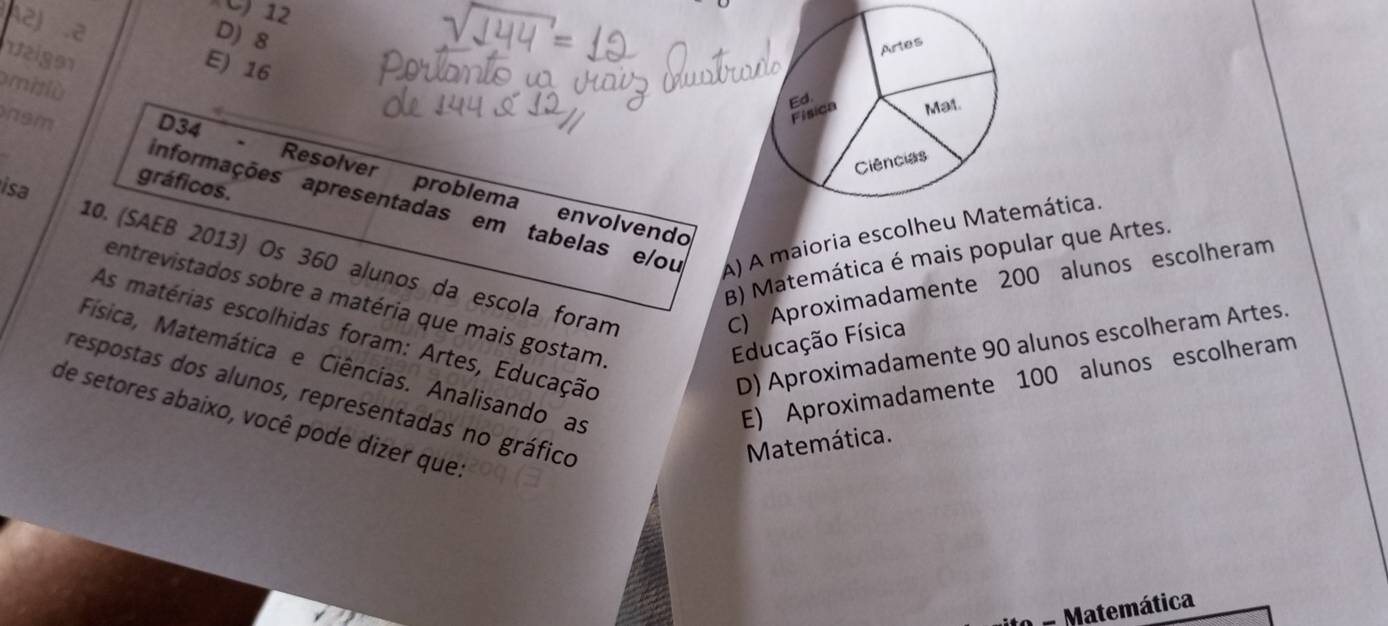 C) 12
D) 8
E) 16
√144 = 12
Portanto a raiz Quatrado
de 144 é 12//
D34 - Resolver problema envolvendo
informações apresentadas em tabelas e/ou
gráficos.
10. (SAEB 2013) Os 360 alunos da escola foram
entrevistados sobre a matéria que mais gostam.
As matérias escolhidas foram: Artes, Educação
Física, Matemática e Ciências. Analisando as
respostas dos alunos, representadas no gráfico
de setores abaixo, você pode dizer que:
Artes
Ed.
Física
Mat.
Ciências
A) A maioria escolheu Matemática.
B) Matemática é mais popular que Artes.
C) Aproximadamente 200 alunos escolheram
Educação Física
D) Aproximadamente 90 alunos escolheram Artes.
E) Aproximadamente 100 alunos escolheram
Matemática.
– Matemática